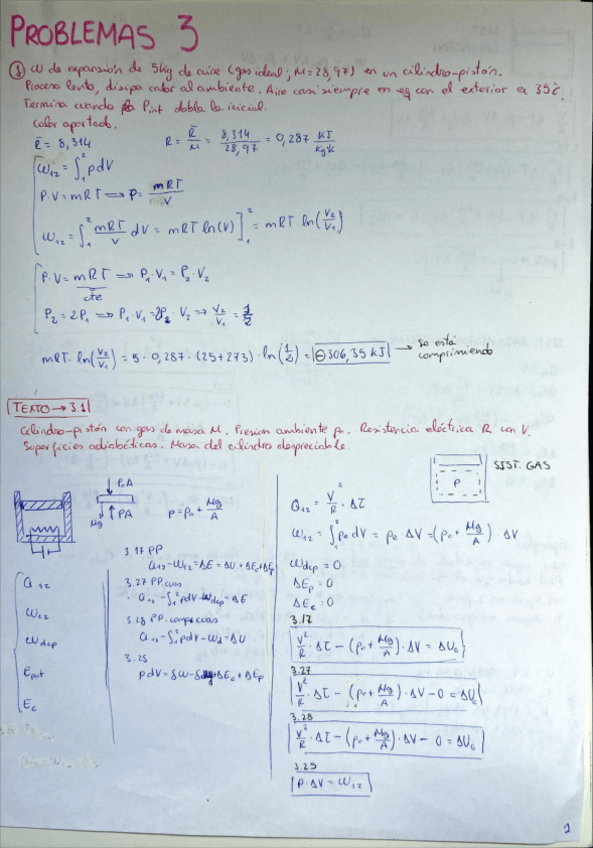 PROBLEMAS 3
① W de expansión de 5kg de aire (gas ideal; M=28,97) en un cilindro-pistón.
Proceso lento, disipa calor al ambiente. Aire casi siempre en eq con el exterior a 35ºC.
Termina cuando Pint dobla la inicial.
Calor aportado.
R̄ = 8,314
R = R̄/M = 8,314/28,97 = 0,287 KJ/kg·K
W12 = ∫₁² pdV
P·V = mRT ⟹ P = mRT/V
W12 = ∫₁² mRT/V dV = mRT ln(V)]₁² = mRT·ln(V2/V1)
P·V = mRT ⟹ P1·V1 = P2·V2
cte
P2 = 2P1 ⟹ P1·V1 = 2P2·V2 → V2/V1 = 1/2
mRT·ln(V2/V1) = 5·0,287·(25+273)·ln(1/2) = ⊖306,35 KJ → se está
comprimiendo
TEXTO → 3.1
Cilindro-pistón con gas de masa M. Presión ambiente p₀. Resistencia eléctrica R con V.
Superficies adiabáticas. Masa del cilindro despreciable.
SIST. GAS
P
P₀A
Mg
PA
P = p₀ + Mg/A
Q12
W12
Wdep
Epot
Ec
3.17 PP
Q12 - W12 = ΔE = ΔU + ΔEc + ΔEp
3.27 PP.
Q12 - ∫₁² pdV - Wdep = ΔE
3.28 PP.
Q12 - ∫₁² pdV - Wd = ΔU
3.25
pdV = δW - ΔEc + ΔEp
Q12 = V²/R · Δt
W12 = ∫₁² p₀dV = pe ΔV = (p₀ + Mg/A) · ΔV
Wdep = 0
ΔEp = 0
ΔEc = 0
3.17
V²/R · Δt - (p₀ + Mg/A) · ΔV = ΔU₆
3.27
V²/R · Δt - (p₀ + Mg/A) · ΔV - 0 = ΔU₆
3.28
V²/R · Δt - (p₀ + Mg/A) · ΔV - 0 = ΔU₆
3.25
P·ΔV = W12
1